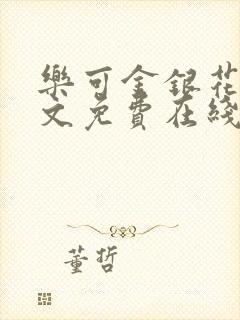 樂可金銀花
文免費在綫
董哲